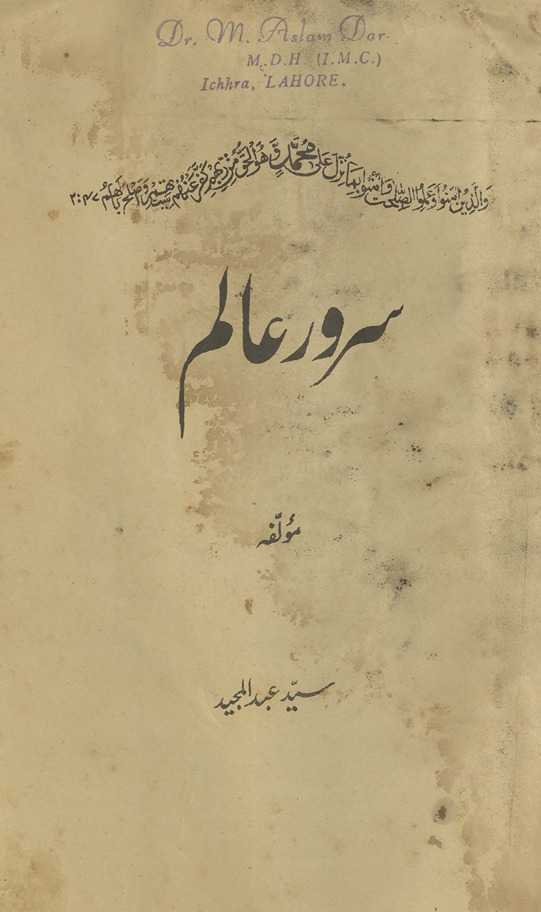 Dr. M. Aslam Dar
M.D.H. (I.M.C.)
Ichhra, LAHORE.
وَالَّذِينَ اٰمَنُوْا وَعَمِلُوا الصّٰلِحٰتِ وَاٰمَنُوْا بِمَا نُزِّلَ عَلٰى مُحَمَّدٍ وَّهُوَ الْحَقُّ مِنْ رَّبِّهِمْ كَفَّرَ عَنْهُمْ سَيِّاٰتِهِمْ وَاَصْلَحَ بَالَهُمْ ۴۷:۲
سرور عالم
مؤلّفہ
سیّد عبد المجید